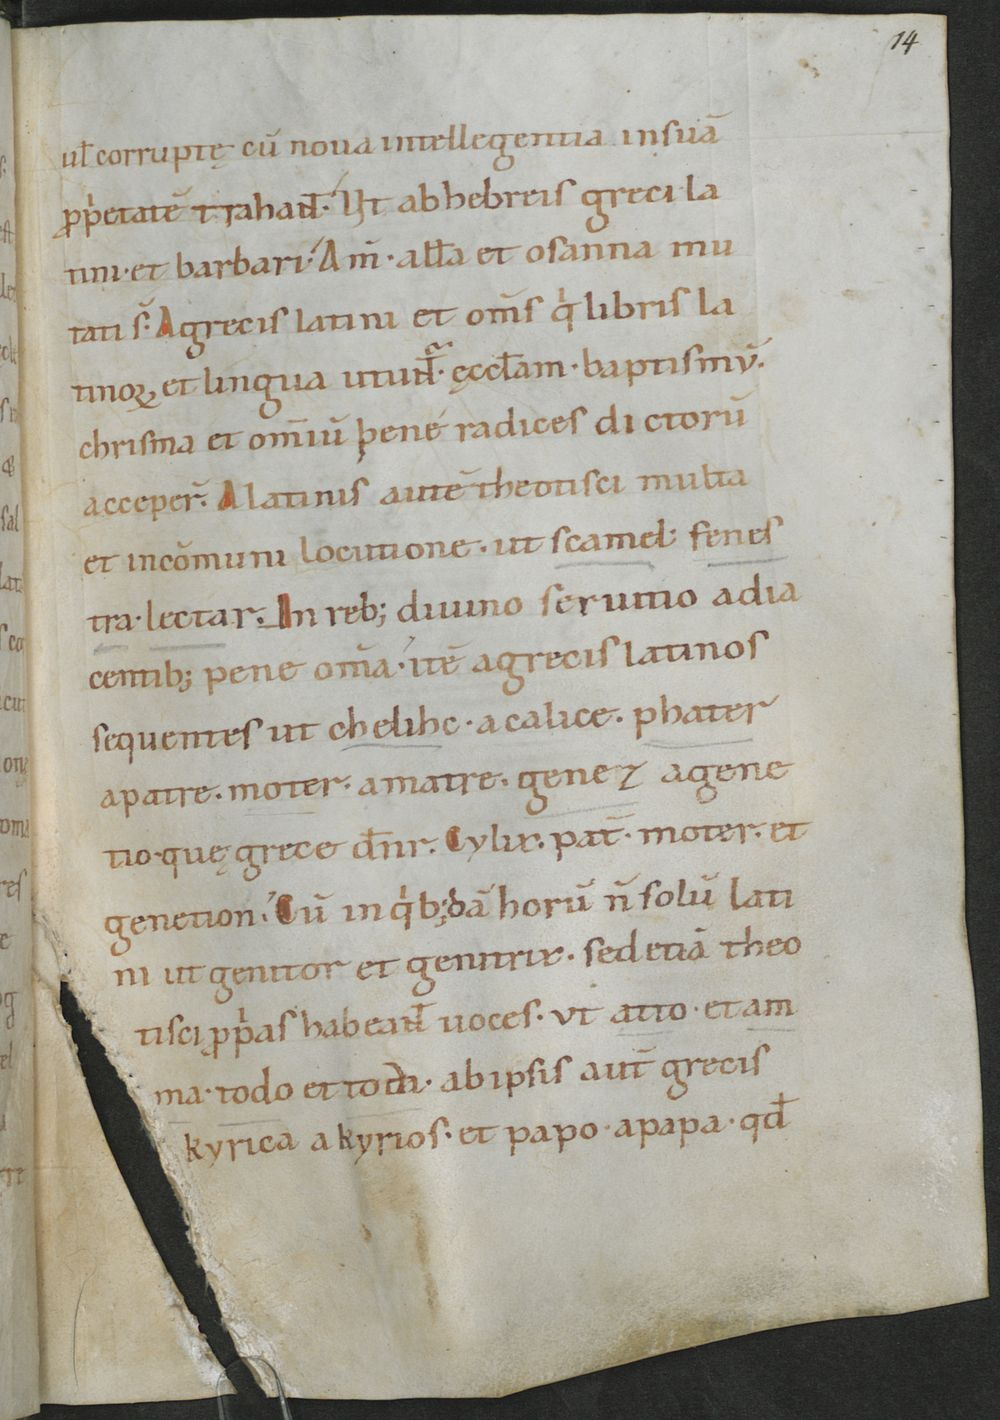 14
ul̄ corruptę cū noua intellegentia insuā
ꝓp̍etatē trahant̄. Ut abhebreis greci·la
tini·et barbari· Am̄·all̄a et osanna mu
tati s̄· Agrecis latini et om̄s q̍ libris la
tinoꝝ et lingua utunt̄ᷓ· ęccl̄am·baptismū·
chrisma et om̄iū pene radices dictorū
acceper̄. A latinis autē theotisci multa
et incōmuni locutione· ut scamel· fenes
tra·lectar· In reb; diuino seruitio adia
centib; pene om̄a· itē agrecis latinos
sequentes ut chelihc· a calice· phater
apatre· moter· amatre· genez agene
tio·quę grece dn̄r. Cylix· pat̄· moter· et
genetion· Cū in q̍b;dā horū n̄ solū lati
ni ut genitor et genitrix· sed etiā theo
tisci ꝓp̍as habeant̄ uoces· vt atto· et am
ma·todo et toda· ab ipsis aut̄ grecis
kyrica a kyrios· et papo·a papa·qd̄